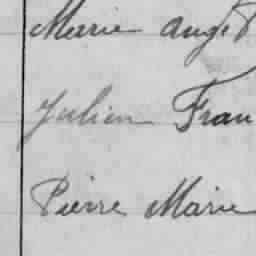 Marie Ang
Julien Fran
Pierre Marie